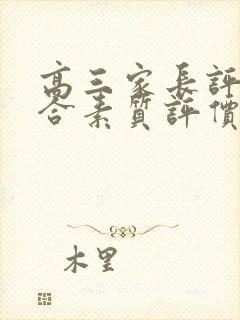 高三家長評
合素質評價
木里